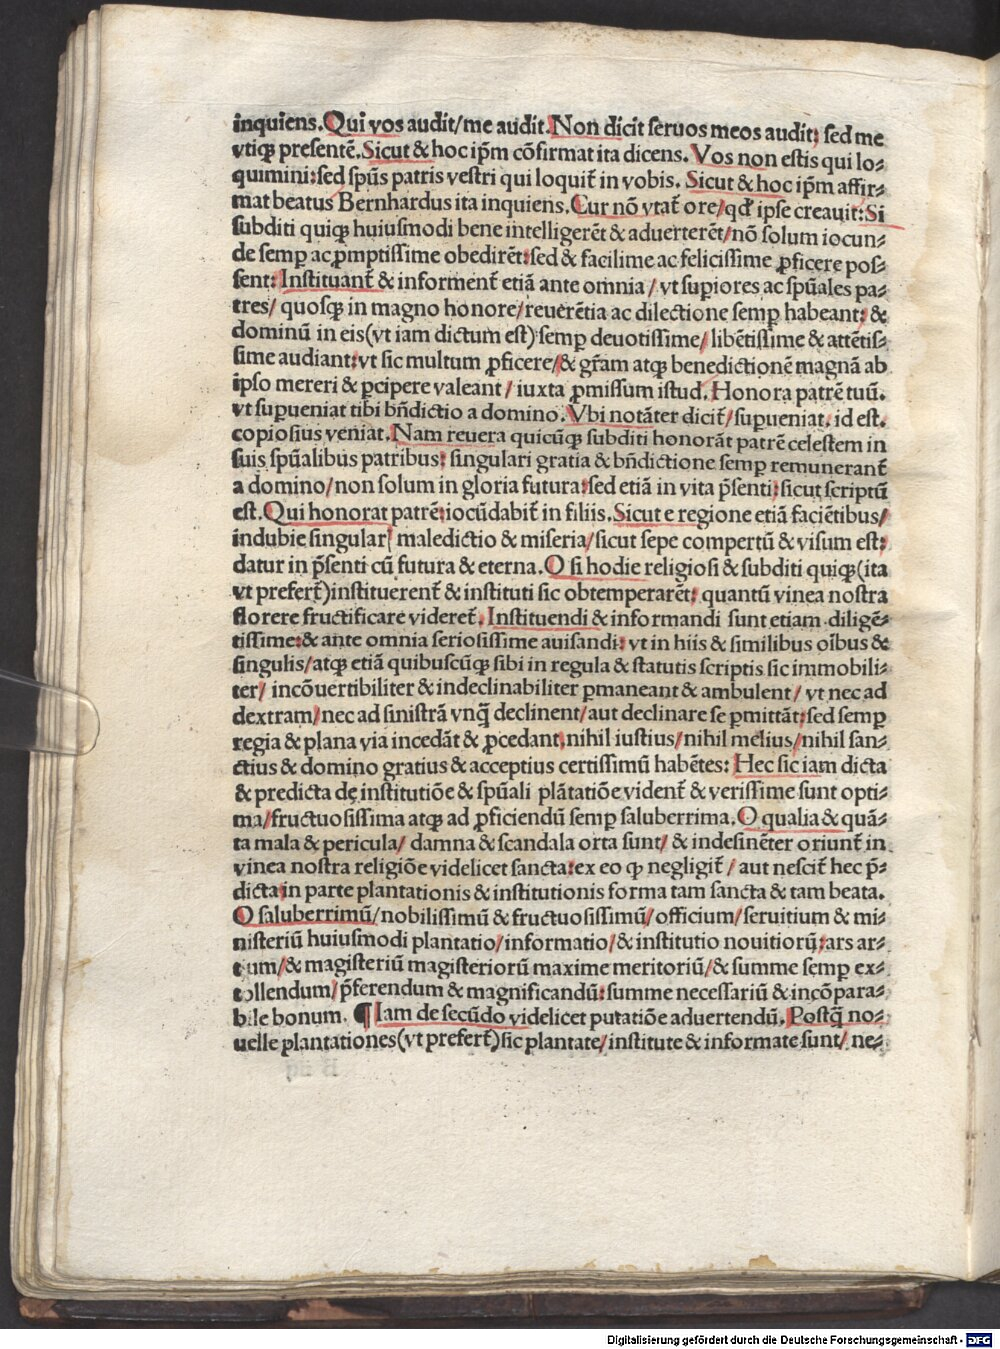 inquiens. Qui vos audit/me audit. Non dicit seruos meos audit; sed me
vtiqꝫ presentē. Sicut & hoc ip̄m cōfirmat ita dicens. Vos non estis qui lo⸗
quimini: sed sp̄us patris vestri qui loquit̄ in vobis. Sicut & hoc ip̄m affir⸗
mat beatus Bernhardus ita inquiens. Cur nō vtat̄ ore/qd̓ ipse creauit: Si
subditi quiqꝫ huiusmodi bene intelligerēt & aduerterēt/nō solum iocun⸗
de semꝑ ac ꝓmptissime obedirēt: sed & facilime ac felicissime ꝓficere pos⸗
sent: Instituant̄ & informent̄ etiā ante omnia/ vt suꝑiores ac sp̄uales pa⸗
tres/ quosqꝫ in magno honore/reuerētia ac dilectione semꝑ habeant: &
dominū in eis(vt iam dictum est) semꝑ deuotissime/libētissime & attētis⸗
sime audiant: vt sic multum ꝓficere/& gr̄am atqꝫ benedictionē magnā ab
ipso mereri & ꝑcipere valeant/ iuxta ꝓmissum istud. Honora patrē tuū.
vt suꝑueniat tibi bn̄dictio a domino. Vbi notāter dicit̄/suꝑueniat. id est.
copiosius veniat. Nam reuera quicūqꝫ subditi honorāt patrē celestem in
suis sp̄ualibus patribus: singulari gratia & bn̄dictione semꝑ remunerant̄
a domino/non solum in gloria futura: sed etiā in vita p̄senti: sicut scriptū
est. Qui honorat patrē: iocūdabit̄ in filiis. Sicut e regione etiā faciētibus/
indubie singular| maledictio & miseria/sicut sepe compertū & visum est:
datur in p̄senti cū futura & eterna. O si hodie religiosi & subditi quiqꝫ(ita
vt prefert̄)instituerent̄ & instituti sic obtemperarēt: quantū vinea nostra
florere fructificare videret̄. Instituendi & informandi sunt etiam diligē⸗
tissime: & ante omnia seriosissime auisandi: vt in hiis & similibus oībus &
singulis/atqꝫ etiā quibuscūqꝫ sibi in regula & statutis scriptis sic immobili⸗
ter/ incōuertibiliter & indeclinabiliter ꝑmaneant & ambulent/ vt nec ad
dextram/nec ad sinistrā vnqꝗ̄ declinent/aut declinare se ꝑmittāt: sed semꝑ
regia & plana via incedāt & ꝓcedant. nihil iustius/nihil melius/nihil san⸗
ctius & domino gratius & acceptius certissimū habētes: Hec sic iam dicta
& predicta de institutiōe & sp̄uali plātatiōe vident̄ & verissime sunt opti⸗
ma/fructuosissima atqꝫ ad ꝓficiendū semꝑ saluberrima. O qualia & quā⸗
ta mala & pericula/ damna & scandala orta sunt/ & indesinēter oriunt̄ in
vinea nostra religiōe videlicet sancta: ex eo ꝙ negligit̄/ aut nescit̄ hec p̄⸗
dicta in parte plantationis & institutionis forma tam sancta & tam beata.
O saluberrimū/nobilissimū & fructuosissimū/officium/seruitium & mi⸗
nisteriū huiusmodi plantatio/informatio/& institutio nouitiorū: ars ar⸗
tium/& magisteriū magisteriorū maxime meritoriū/& summe semꝑ ex⸗
tollendum/p̄ferendum & magnificandū: summe necessariū & incōpara⸗
bile bonum. ¶ Iam de secūdo videlicet putatiōe aduertendū. Postꝗ̄ no⸗
uelle plantationes(vt prefert̄)sic plantate/institute & informate sunt/ ne⸗
Digitalisierung gefördert durch die Deutsche Forschungsgemeinschaft - DFG